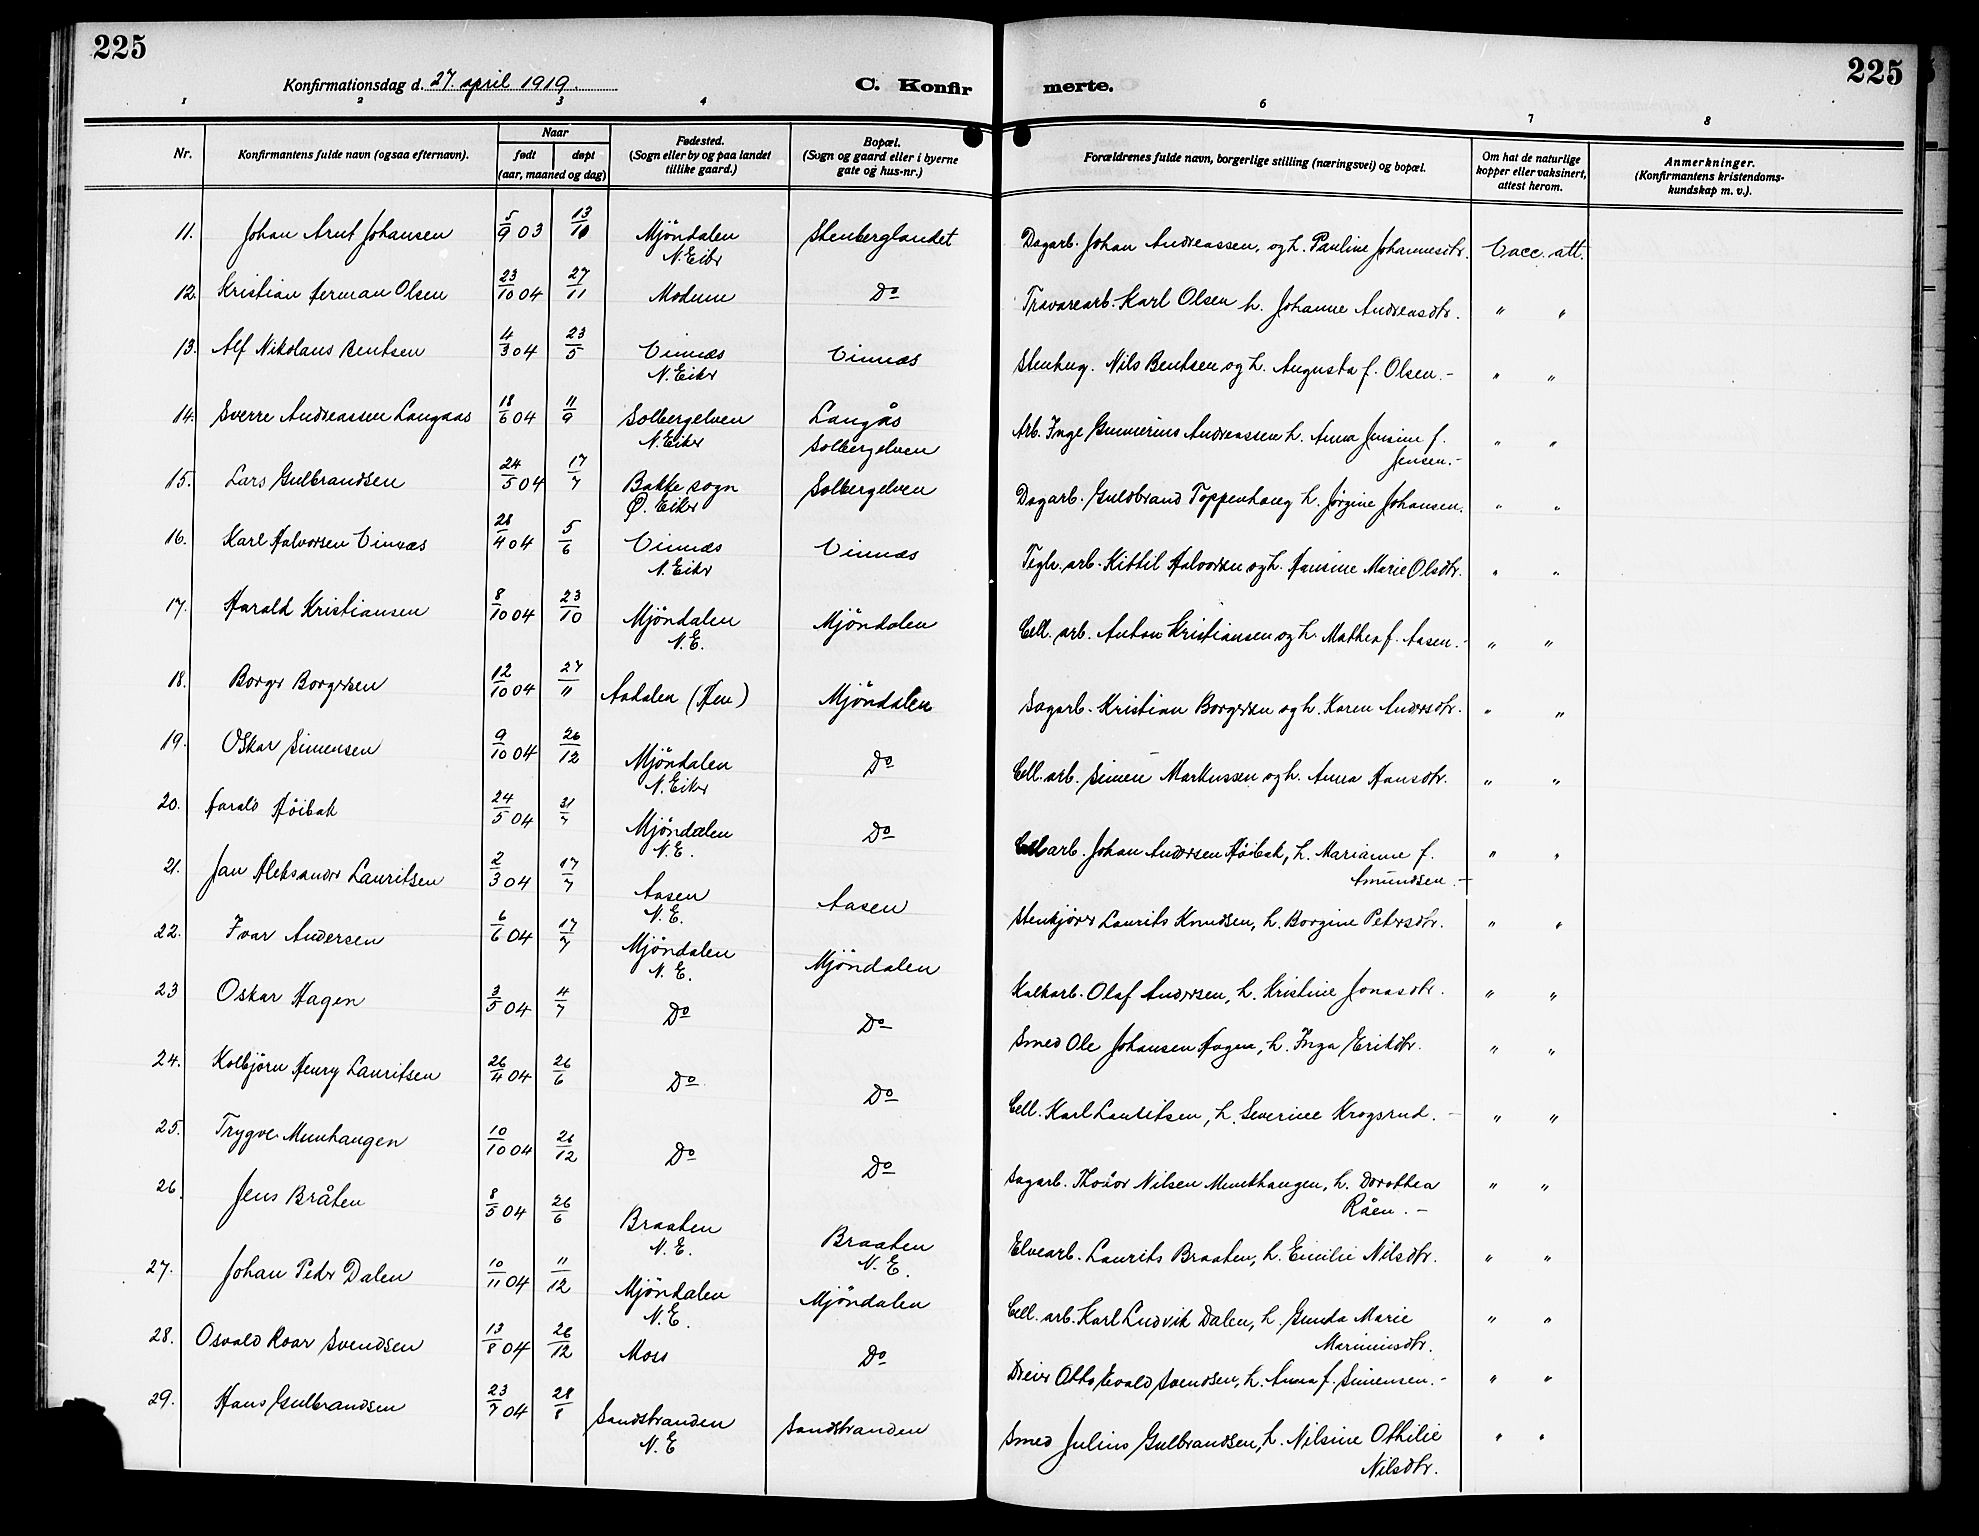 225
Konfirmationsdag d. 27. april 1919.
C. Konfir merte.
225
1 2 3 4 6 7 8
Nr.
Konfirmantens fulde navn (ogsaa efternavn).
Naar
født døpt
(aar, maaned og dag)
Fødested.
(Sogn eller by og paa landet
tillike gaard.)
Bopæl.
(Sogn og gaard eller i byerne
gate og hus-nr.)
Forældrenes fulde navn, borgerlige stilling (næringsvei) og bopæl.
Om hat de naturlige
kopper eller vaksinert,
attest herom.
Anmerkninger.
(Konfirmantens kristendoms-
kundskap m. v.).
11. Johan Arnt Johansen 5/9 03 13/10 Mjöndalen Stenberglandet Dagarb. Johan Andreassen, og h. Pauline Johannesdtr. Vacc. att.
N. Eikr
12. Kristian Herman Olsen 23/10 04 27/11 Modum Do Travarearb. Karl Olsen h. Johanne Andreasdtr. " "
13. Alf Nikolaus Bentsen 4/3 04 23/5 Vinnæs Vinnæs Stenhug. Nils Bentsen og h. Augusta f. Olsen.- " "
N. Eikr
14. Sverre Andreassen Langaas 18/6 04 11/9 Solbergelven Langås Arb. Inge Gunnerius Andreassen h. Anna Jensine f. " "
N. Eikr Solbergelven Jensen.-
15. Lars Gulbrandsen 24/5 04 17/7 Bakke sogn Solbergelven Dagarb. Guldbrand Toppenhaug h. Jørgine Johansen. " "
Ø. Eikr
16. Karl Halvorsen Vinnæs 28/4 04 5/6 Vinnæs Vinnæs Teglv. arb. Kittil Halvorsen og h. Hansine Marie Olsdtr. " "
N. Eikr
17. Harald Kristiansen 8/10 04 23/10 Mjöndalen Mjöndalen Cell. arb. Anton Kristiansen og h. Mathea f. Aasen.- " "
N. E.
18. Borger Borgersen 12/10 04 27/11 Aadalen (Hen) Mjöndalen Sagarb. Kristian Borgersen og h. Karen Andersdtr. " "
19. Oskar Simensen 9/10 04 26/12 Mjöndalen Do Cell. arb. Simen Markussen og h. Anna Hansdtr. " "
N. Eikr
20. Harald Höibak 24/5 04 31/7 Mjöndalen Do Cell arb. Johan Andersen Höibak, h. Marianne f. " "
N. E. Amundsen.-
21. Jan Aleksander Lauritsen 2/3 04 17/7 Aasen Aasen Stenkjörer Laurits Knudsen, h. Borgine Petersdtr. " "
N. E.
22. Ivar Andersen 6/6 04 17/7 Mjöndalen Mjöndalen Kalkarb. Olaf Andersen, h. Kristine Jonasdtr. " "
N. E.
23 Oskar Hagen 3/5 04 4/7 Do Do Smed Ole Johansen Hagen, h. Inga Eriksdtr. " "
24. Kolbjörn Henry Lauritsen 26/4 04 26/6 Do Do Cell. Karl Lauritsen, h. Severine Krogsrud.- " "
25. Trygve Munhaugen 10/10 04 26/12 Do Do Sagarb. Thodor Nilsen Munkhaugen, h. Dorothea " "
Råen.-
26. Jens Bråten 8/5 04 26/6 Braaten Braaten Elvearb. Laurits Braaten, h. Emilie Nilsdtr. " "
N. E. N. E.
27. Johan Peder Dalen 10/11 04 11/12 Mjöndalen Mjöndalen Cell. arb. Karl Ludvik Dalen, h. Gunda Marie " "
N. E. Mariniusdtr.
28. Osvald Roar Svendsen 13/8 04 26/12 Moss Do Dreier Otto Evald Svendsen, h. Anna f. Simensen.- " "
29. Hans Gulbrandsen 23/7 04 28/8 Sandstranden Sandstranden Smed Julius Gulbrandsen, h. Nilsine Othilie " "
N. E Nilsdtr.